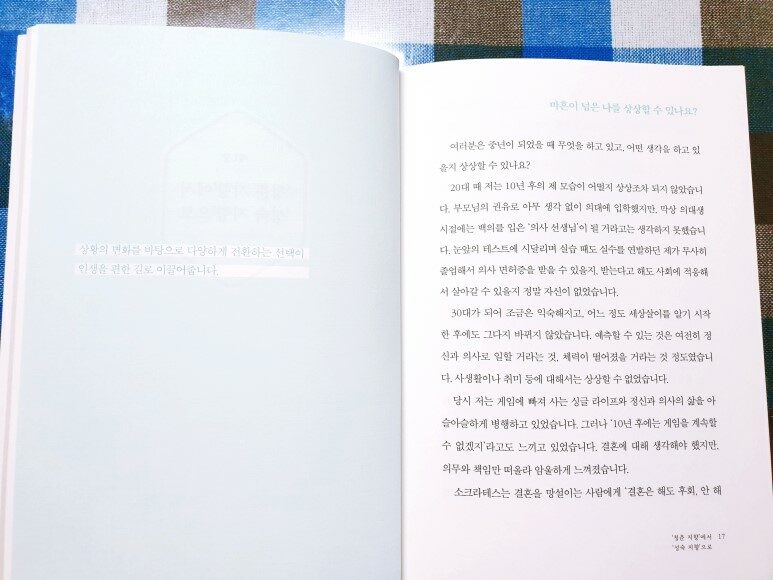 상황의 변화를 바탕으로 다양하게 전환하는 선택이
인생을 편한 길로 이끌어줍니다.
마흔이 넘은 나를 상상할 수 있나요?
여러분은 중년이 되었을 때 무엇을 하고 있고, 어떤 생각을 하고 있
을지 상상할 수 있나요?
20대 때 저는 10년 후의 제 모습이 어떨지 상상조차 되지 않았습니
다. 부모님의 권유로 아무 생각 없이 의대에 입학했지만, 막상 의대생
시절에는 백의를 입은 '의사 선생님'이 될 거라고는 생각하지 못했습니
다. 눈앞의 테스트에 시달리며 실습 때도 실수를 연발하던 제가 무사히
졸업해서 의사 면허증을 받을 수 있을지, 받는다고 해도 사회에 적응해
서 살아갈 수 있을지 정말 자신이 없었습니다.
30대가 되어 조금은 익숙해지고, 어느 정도 세상살이를 알기 시작
한 후에도 그다지 바뀌지 않았습니다. 예측할 수 있는 것은 여전히 정
신과 의사로 일할 거라는 것, 체력이 떨어졌을 거라는 것 정도였습니
다. 사생활이나 취미 등에 대해서는 상상할 수 없었습니다.
당시 저는 게임에 빠져 사는 싱글 라이프와 정신과 의사의 삶을 아
슬아슬하게 병행하고 있었습니다. 그러나 '10년 후에는 게임을 계속할
수 없겠지'라고도 느끼고 있었습니다. 결혼에 대해 생각해야 했지만,
의무와 책임만 떠올라 암울하게 느껴졌습니다.
소크라테스는 결혼을 망설이는 사람에게 '결혼은 해도 후회, 안 해
'청춘 지향'에서 17
'성숙 지향'으로